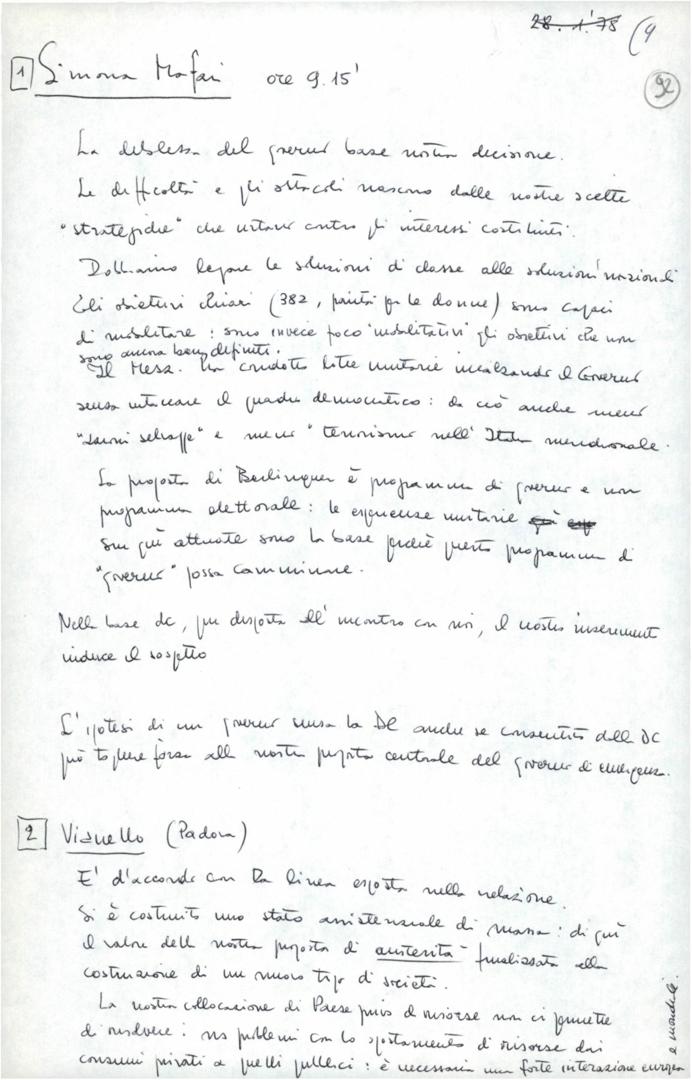 28.1.78 (4
92
1 Simona Mafai ore 9.15'
La debolezza del governo base nostra decisione.
Le difficoltà e gli ostacoli nascono dalle nostre scelte
"strategiche" che urtano contro gli interessi costituiti.
Dobbiamo legare le soluzioni di classe alle soluzioni nazionali
Gli obiettivi chiari (382, parità per le donne) sono capaci
di mobilitare: sono invece poco "mobilitativi" gli obiettivi che non
sono ancora ben definiti.
Il Mezz. ha condotto lotte unitarie incalzando il Governo
senza intaccare il quadro democratico: da ciò anche meno
"selvagge" e meno "terrorismo nell'Italia meridionale.
La proposta di Berlinguer è programma di governo e non
programma elettorale: le esperienze unitarie
sin qui attuate sono la base perché questo programma di
"governo" possa camminare.
Nella base dc, pur disposta all'incontro con noi, il nostro inserimento
induce il sospetto
L'ipotesi di un governo senza la DC anche se consentito dalla DC
può togliere forza alla nostra proposta centrale del governo di emergenza.
2 Vianello (Padova)
E' d'accordo con la linea esposta nella relazione.
Si è costruito uno stato assistenziale di massa: di qui
il valore della nostra proposta di austerità finalizzata alla
costruzione di un nuovo tipo di società.
La nostra collocazione di Paese privo di risorse non ci permette
di risolvere i ns problemi con lo spostamento di risorse dai
consumi privati a quelli pubblici: è necessaria una forte interazione europea
e mondiale.